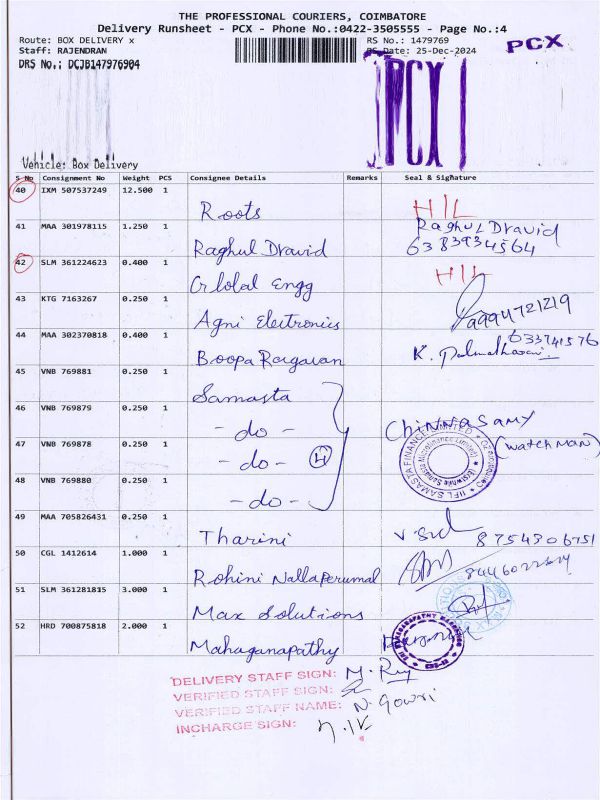 THE PROFESSIONAL COURIERS, COIMBATORE
Delivery Runsheet - PCX - Phone No.:0422-3505555 - Page No.:4
Route: BOX DELIVERY x
RS No.: 1479769
Staff: RAJENDRAN
RS Date: 25-Dec-2024
PCX
DRS No.: DCJB147976904
PCX
Vehicle: Box Delivery
S No Consignment No Weight PCS Consignee Details Remarks Seal & Signature
40 IXM 507537249 12.500 1 Roots HIL
41 MAA 301978115 1.250 1 Raghul Dravid Raghul Dravid
6383934564
42 SLM 361224623 0.400 1 Global Engg HIL
43 KTG 7163267 0.250 1 Agni Electronics 9994721219
44 MAA 302370818 0.400 1 Boopa Ragavan K.
45 VNB 769881 0.250 1 Samasta
46 VNB 769879 0.250 1 -do- Chinnasamy
47 VNB 769878 0.250 1 -do- 4 (watchman)
IIFL SAMASTA FINANCE LIMITED
48 VNB 769880 0.250 1 -do-
49 MAA 705826431 0.250 1 Tharini 8754306751
50 CGL 1412614 1.000 1 Rohini Nallaperumal
51 SLM 361281815 3.000 1 Max Solutions
52 HRD 700875818 2.000 1 Mahaganapathy
DELIVERY STAFF SIGN:
VERIFIED STAFF SIGN:
VERIFIED STAFF NAME: N. Gowri
INCHARGE SIGN: